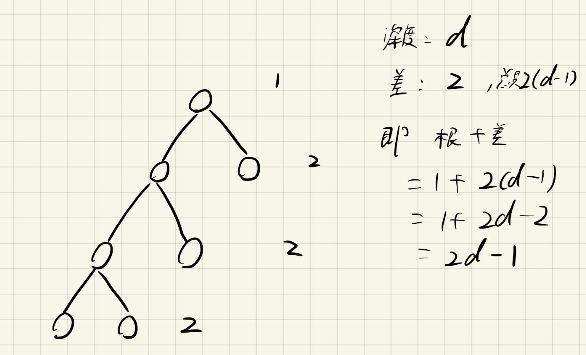 1
2
2
2
深度: d
差: 2 ,总2(d-1)
即 根+差
= 1+ 2(d-1)
= 1+ 2d-2
= 2d-1